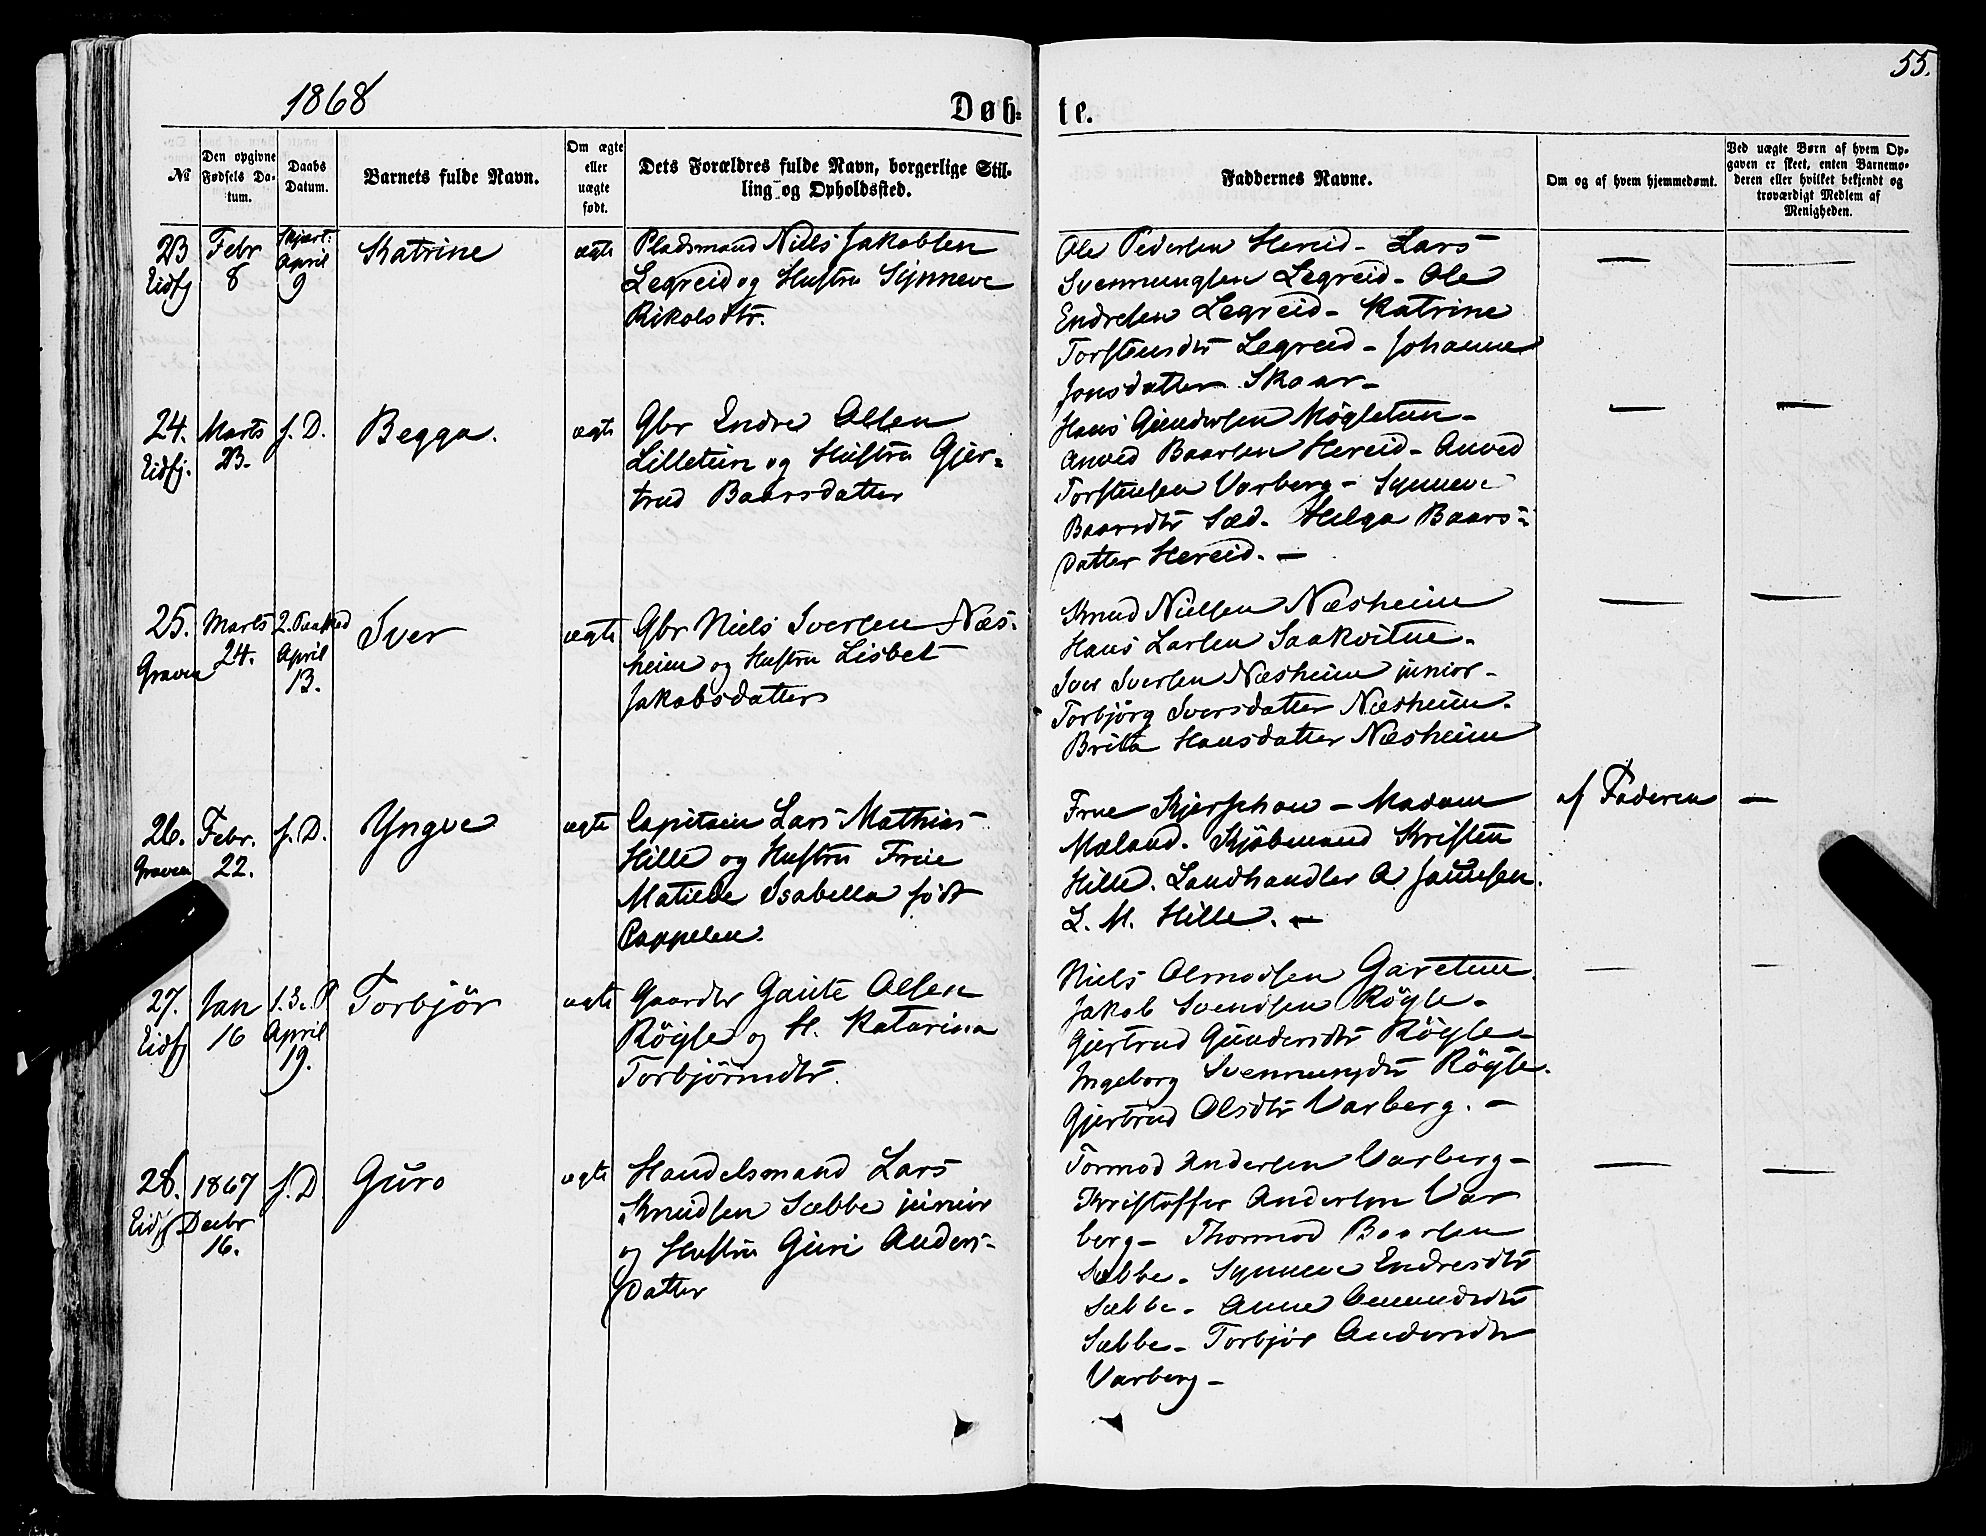 1868
Døb-
te.
55.
№
Den opgivne Fødsels Da-tum.
Daabs Datum.
Barnets fulde Navn.
Om ægte eller uægte født.
Dets Forældres fulde Navn, borgerlige Stil-
ling og Opholdssted.
Faddernes Navne.
Om og af hvem hjemmedøbt.
Ved uægte Børn af hvem Op-
gaven er skeet, enten Barnemo-
deren eller hvilket bekjendt og
troværdigt Medlem af
Menigheden.
23 Eidfj
Febr 8
Skjært: April 9
Katrine
ægte
Pladsmand Niels Jakobsen
Legreid og Hustru Synneve
Rikolsdtr.
Ole Pedersen Hereid - Lars
Svennungsen Legreid - Ole
Endresen Legreid - Katrine
Torstensdtr Legreid - Johanne
Jonsdatter Skaar -
—
—
24. Eidfj.
Marts 23.
s. D.
Begga.
ægte
Gbr Endre Olsen
Lilletun og Hustru Gjer-
trud Baarsdatter
Hans Gundersen Møgletun -
Anved Baarsen Hereid - Anved
Torstensen Varberg - Synneve
Baarsdtr Sæd. Helga Baars-
datter Hereid. —
—
—
25. Graven
Marts 24.
2. Paaskd April 13.
Iver
ægte
Gbr Niels Iversen Næs-
heim og Hustru Lisbet
Jakobsdatter
Knud Nielsen Næsheim
Hans Larsen Saakvitne -
Iver Iversen Næsheim junior -
Torbjörg Iversdatter Næsheim -
Brita Hansdatter Næsheim
—
—
26. Graven
Febr. 22.
s. D.
Yngve
ægte
Capitain Lars Mathias
Hille og Hustru Frue
Matilde Isabella født
Cappelen.
Frue Kjerschow - Madam
Mæland. Kjøbmand Kristen
Hille. Landhandler A Jannsen.
L. M. Hille. —
af Faderen
—
27. Eidfj
Jan 16
1. S. e. P April 19.
Torbjör
ægte
Gaardbr Gaute Olsen
Röise og H. Katarina
Torbjörnsdtr.
Niels Olmodsen Garetun.
Jakob Svendsen Röise -
Gjertrud Gundersdtr Röise -
Ingeborg Svennungsdtr Röise.
Gjertrud Olsdtr Varberg. -
—
—
28. Eidfj
1867 Decbr 16.
s. D
Guro
ægte
Handelsmand Lars
Knudsen Sæbbe junior
og Hustru Guri Anders-
datter
Tormod Andersen Varberg -
Kristoffer Andersen Var
berg - Thormod Baarsen
Sæbbe - Synneve Endresdtr
Sæbbe - Anne Amundsdtr
Sæbbe - Torbjör Andersdtr
Varberg -
—
—